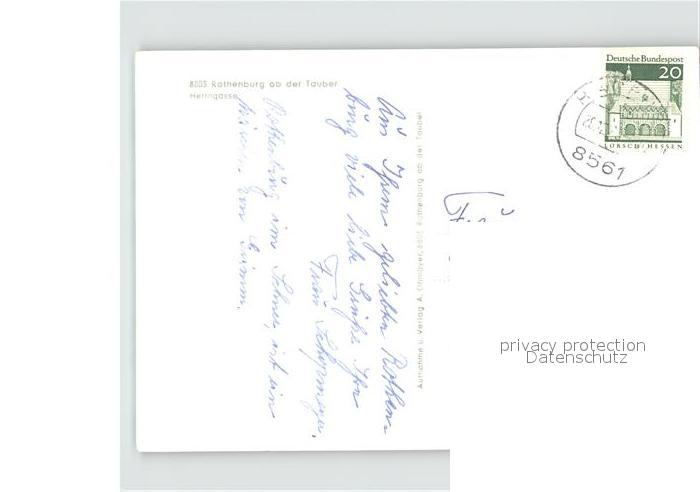 8803 Rothenburg ob der Tauber
Herrngasse
Aus Ihrem geliebten Rothen-
burg viele liebe Grüße Ihre
Frau
Rothenburg im Schnee, ist ein
Aufnahme u. Verlag A. Ohmayer, 8803 Rothenburg ob der Tauber
Deutsche Bundespost
20
LORSCH/HESSEN
8561
Frau
privacy protection
Datenschutz